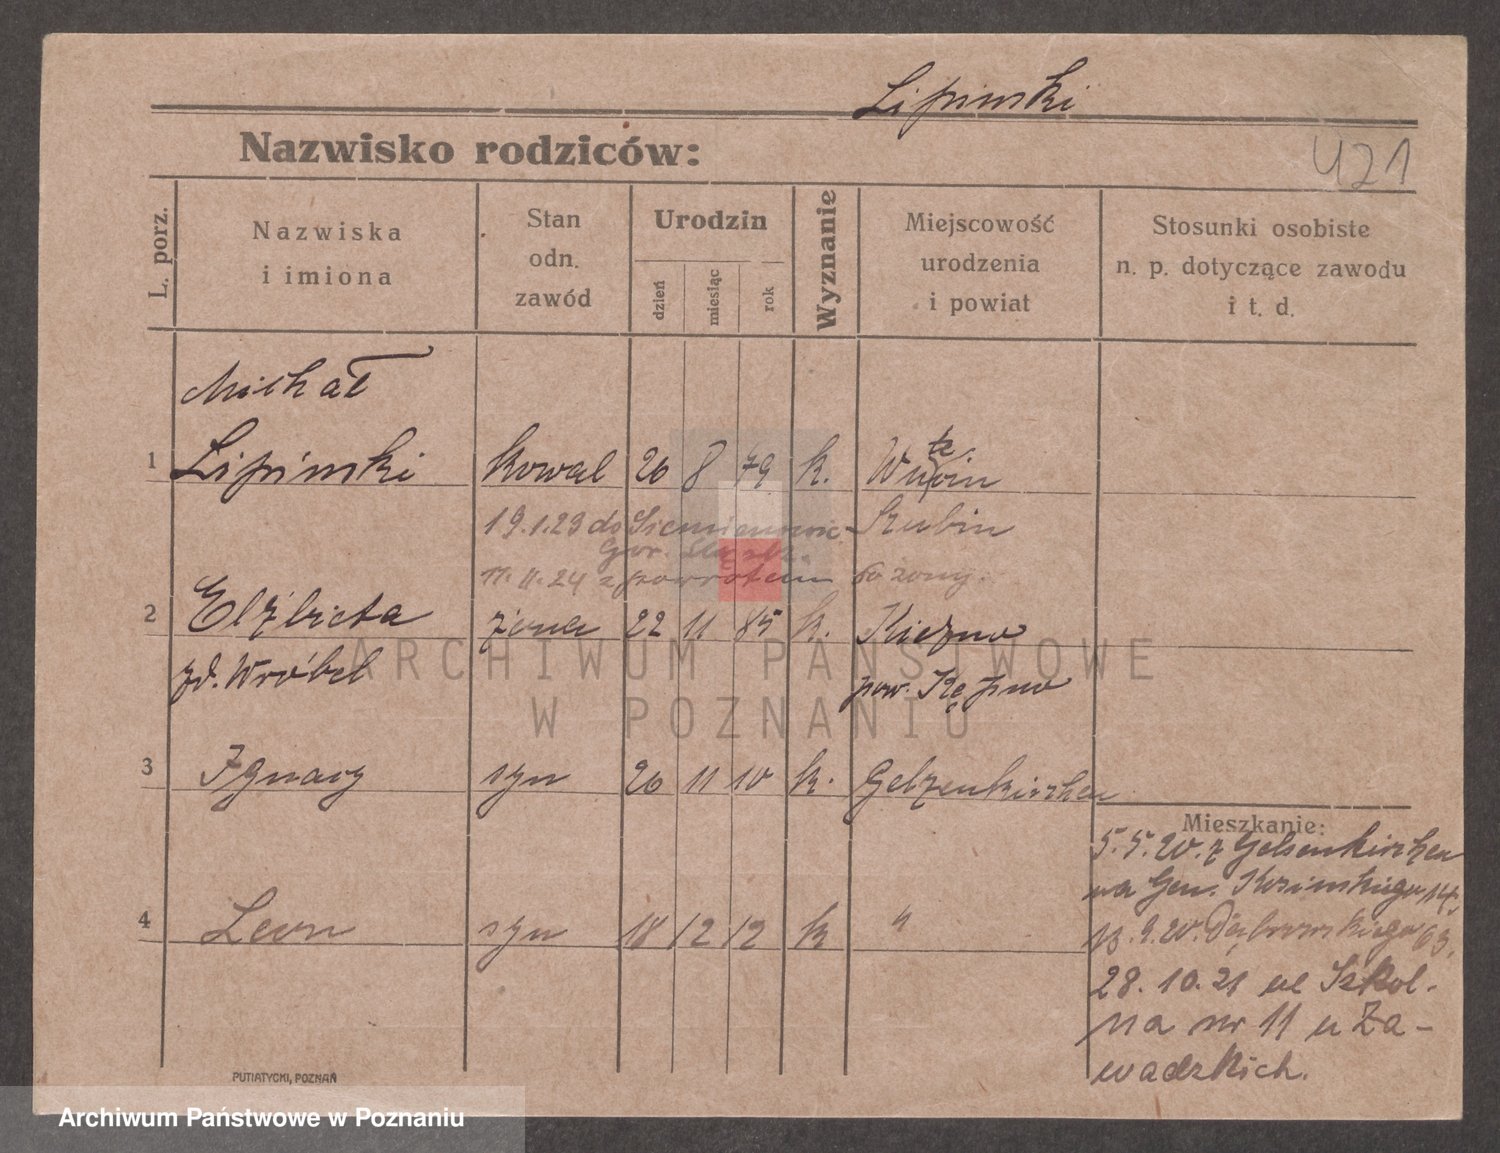 Lipinski
Nazwisko rodziców:
421
L. porz.
Nazwiska
i imiona
Stan
odn.
zawód
Urodzin
dzień
miesiąc
rok
Wyznanie
Miejscowość
urodzenia
i powiat
Stosunki osobiste
n. p. dotyczące zawodu
i t. d.
Michał
1 Lipinski kowal 26 8 79 k.
19.1.23 do Siemianowic Szubin
Gór. Śląsk.
11.11.24 z powrotem do żony.
2 Elżbieta żona 22 11 85 k. Kiezno
zd. Wróbel pow. Kępno
ARCHIWUM PAŃSTWOWE
W POZNANIU
3 Ignacy syn 26 11 10 k. Gelzenkirchen
Mieszkanie:
5.5.20. z Gelsenkirchen
na Gen. Kosinskiego 14.
13.9.20. Dąbrowskiego 63.
4 Leon syn 18 12 12 k "
28.10.21 ul Szkol-
na nr 11 u Za-
wadzkich.
PUTIATYCKI, POZNAŃ
Archiwum Państwowe w Poznaniu